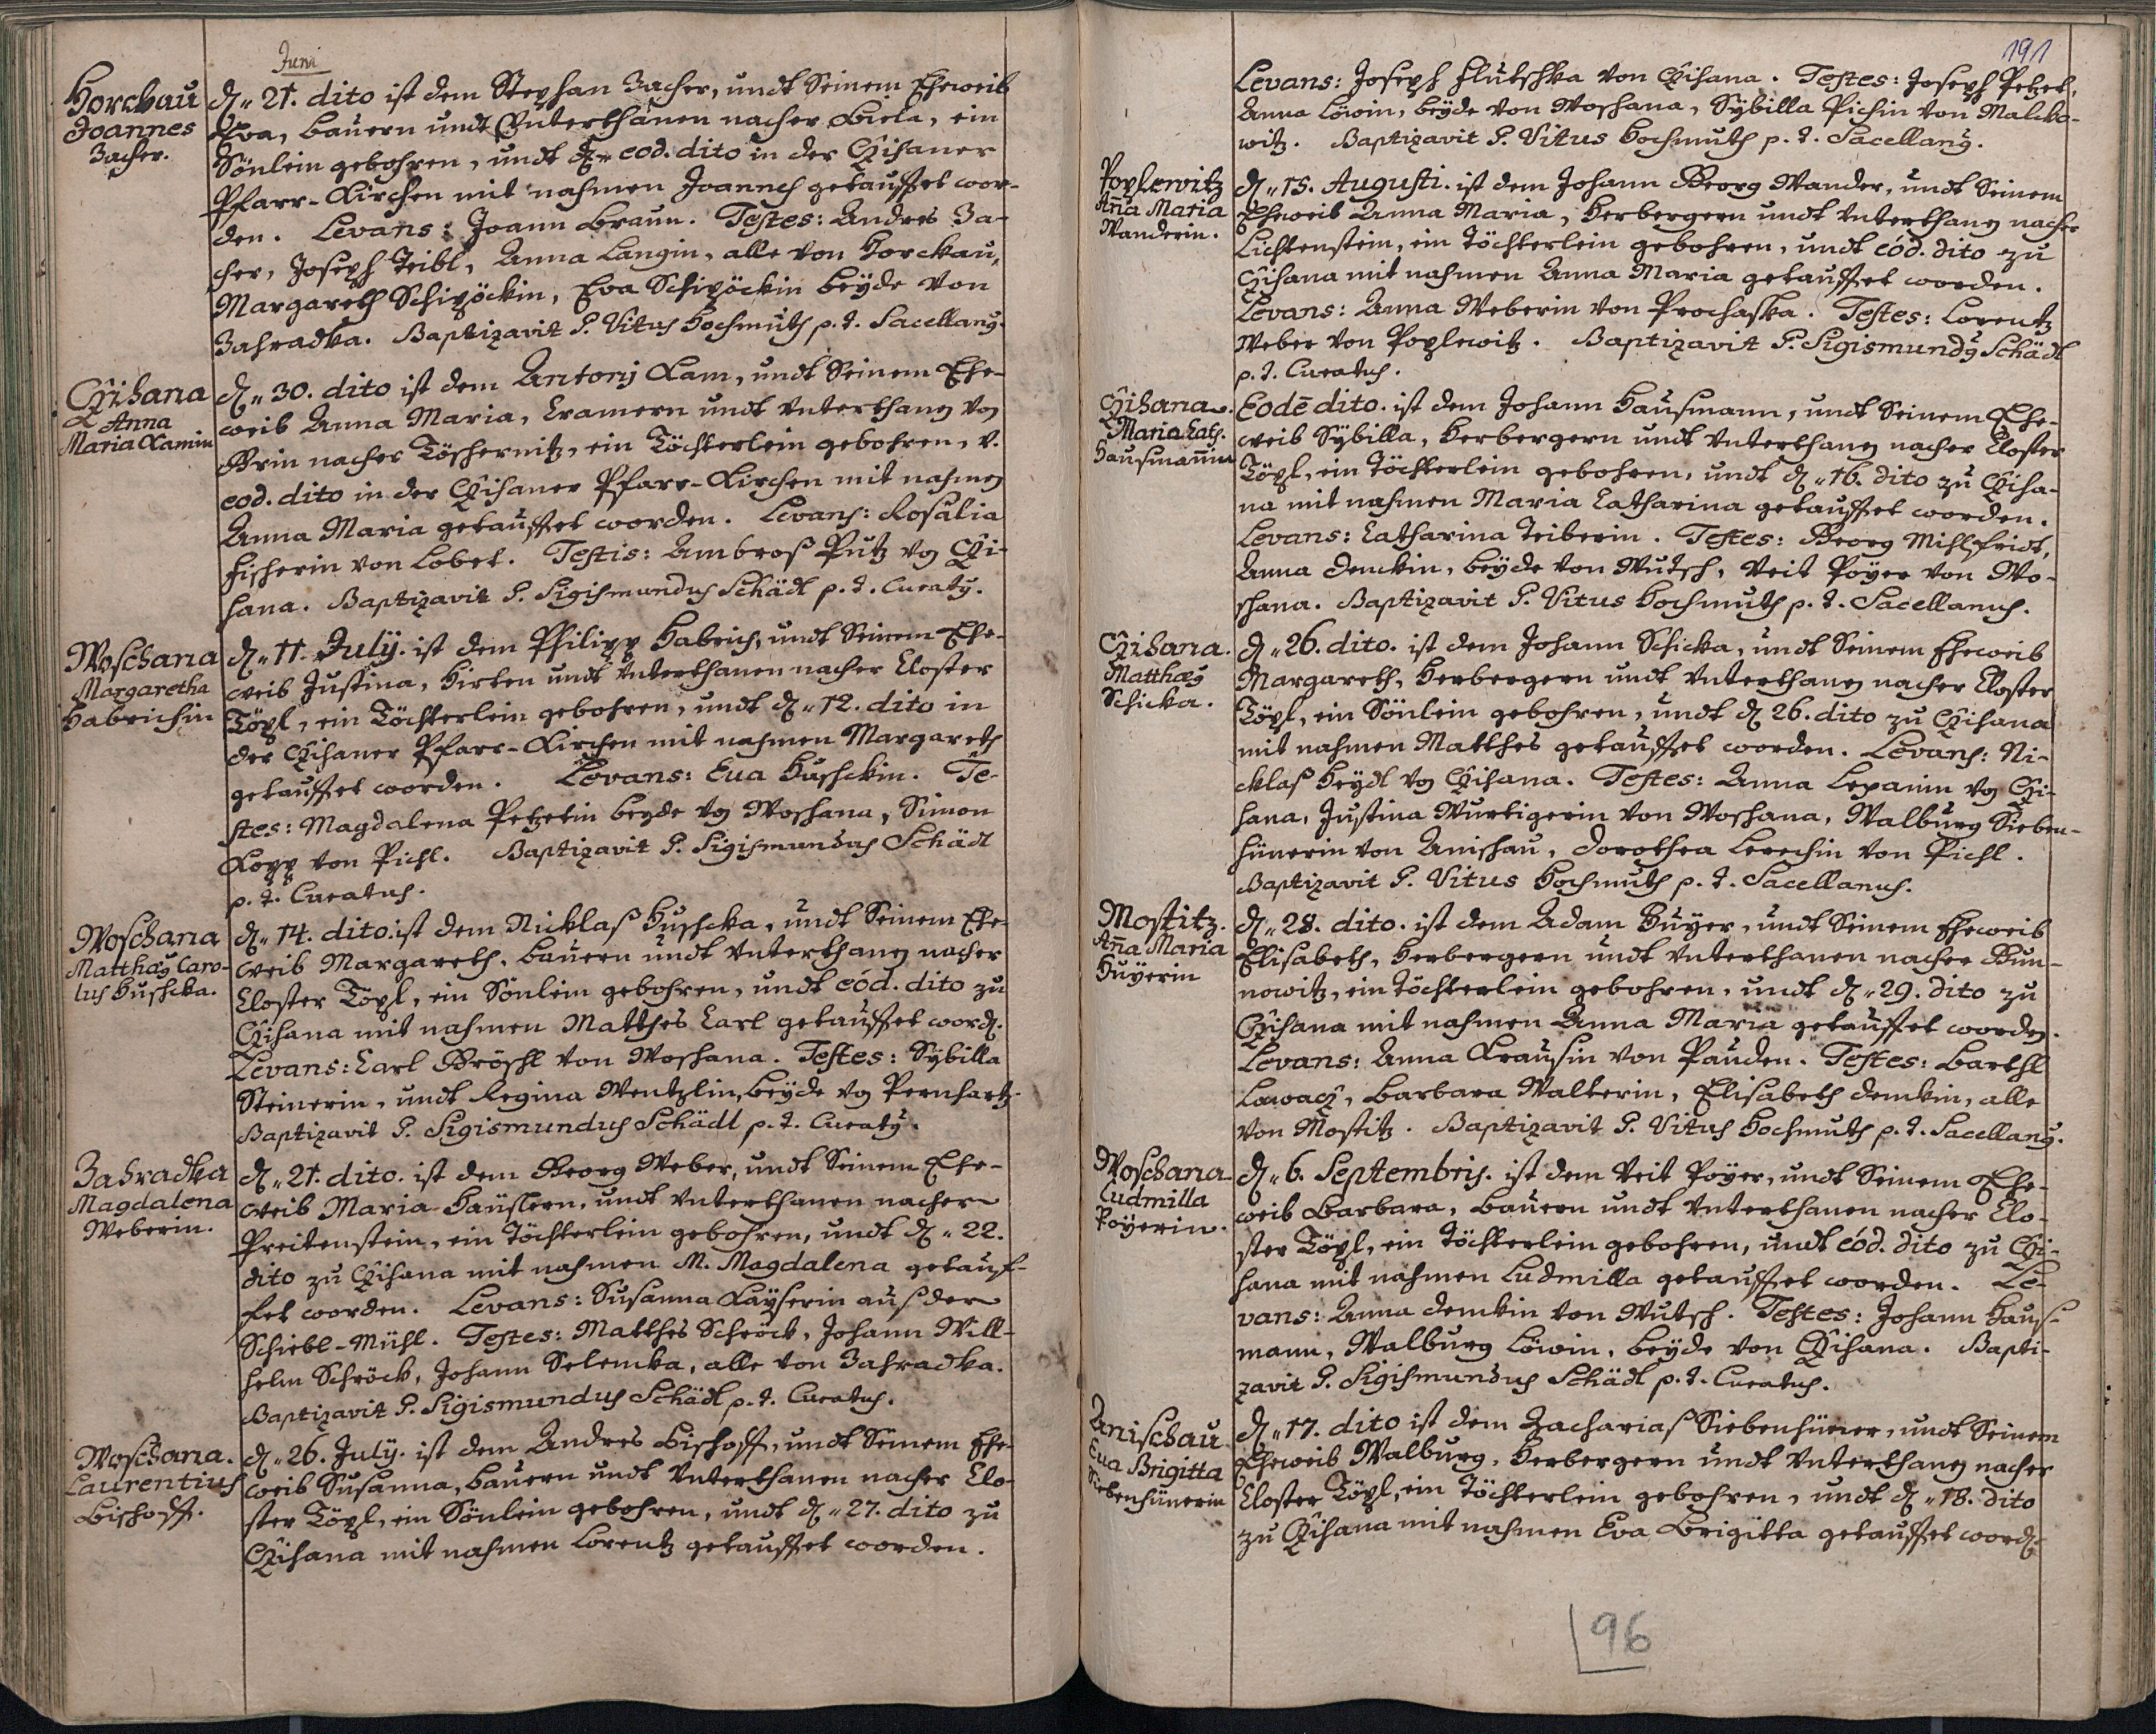 Juni
Horckau
Joannes
Zacher.
d. 21. dito ist dem Stephan Zacher, undt Seinem Eheweib
Eva, bauern undt Unterthanen nacher Biela, ein
Sönlein gebohren, undt d. eod. dito in der Cžihaner
Pfarr-Kirchen mit nahmen Joannes getauffet wor-
den. Levans: Joann Braun. Testes: Andres Za-
cher, Joseph Teibl, Anna Langin, alle von Horckau,
Margareth Schipöckin, Eva Schipöckin beÿde von
Zahradka. Baptizavit P. Vitus Hochmuth p. t. Sacellanÿ.
Cžihana
Anna
Maria Kamin
d. 30. dito ist dem Antonÿ Kam, undt Seinem Ehe-
weib Anna Maria, Cramern undt Unterthanen von
Brin nacher Töschernitz, ein Töchterlein gebohren, v.
eod. dito in der Cžihaner Pfarr-Kirchen mit nahmen
Anna Maria getauffet worden. Levans: Rosalia
Fischerin von Lobes. Testis: Ambroß Putz von Cži-
hana. Baptizavit P. Sigismundus Schädl p. t. Curatÿ.
Woschana
Margaretha
Habrichin
d. 11. Julÿ. ist dem Philipp Habrich, undt Seinem Ehe-
weib Justina, Hirten undt Unterthanen nacher Closter
Töpl, ein Töchterlein gebohren, undt d. 12. dito in
der Cžihaner Pfarr-Kirchen mit nahmen Margareth
getauffet worden. Levans: Eva Huschckin. Te-
stes: Magdalena Petzetin beyde von Woschana, Simon
Kopp von Pichl. Baptizavit P. Sigismundus Schädl
p. t. Curatus.
Woschana
Matthæÿ Caro-
lus Huschcka.
d. 14. dito. ist dem Nicklaß Huschcka, undt Seinem Ehe-
weib Margareth, bauern undt Unterthanen nacher
Closter Töpl, ein Sönlein gebohren, undt eód. dito zu
Cžihana mit nahmen Matthes Carl getauffet word.
Levans: Carl Gröschl von Woschana. Testes: Sÿbilla
Steinerin, undt Regina Wentzlin, beÿde von Pernhartz.
Baptizavit P. Sigismundus Schädl p. t. Curatÿ.
Zahradka
Magdalena
Weberin.
d. 21. dito. ist dem Georg Weber, undt Seinem Ehe-
weib Maria Häuslern, undt Unterthanen nacher
Preitenstein, ein Töchterlein gebohren, undt d. 22.
dito zu Cžihana mit nahmen M. Magdalena getauf-
fet worden. Levans: Susanna Kaÿserin auß der
Schiebl-Mühl. Testes: Matthes Schröck, Johann Will-
helm Schröck, Johann Selencka, alle von Zahradka.
Baptizavit P. Sigismundus Schädl p. t. Curatus.
Woschana.
Laurentius
Bischoff.
d. 26. Julÿ. ist dem Andres Bischoff, undt Seinem Ehe-
weib Susanna, bauern undt Unterthanen nacher Clo-
ster Töpl, ein Sönlein gebohren, undt d. 27. dito zu
Cžihana mit nahmen Lorentz getauffet worden.
191
Levans: Joseph Flutschka von Cžihana. Testes: Joseph Petzet,
Anna Löwin, beÿde von Woschana, Sÿbilla Pichin von Malcko-
witz. Baptizavit P. Vitus Hochmuth p. t. Sacellanÿ.
Poplewitz
Aña Maria
Wanderin.
d. 15. Augusti. ist dem Johann Georg Wander, undt Seinem
Eheweib Anna Maria, Herbergern undt Unterthanen nacher
Lichtenstein, ein Töchterlein gebohren, undt eód. dito zu
Cžihana mit nahmen Anna Maria getauffet worden.
Levans: Anna Weberin von Prochaska. Testes: Lorentz
Weber von Poplewitz. Baptizavit P. Sigismundÿ Schädl
p. t. Curatus.
Cžihana.
Maria Cath.
Hausmañin
Eodē dito. ist dem Johann Hausmann, undt Seinem Ehe-
weib Sÿbilla, Herbergern undt Unterthanen nacher Closter
Töpl, ein Töchterlein gebohren, undt d. 16. dito zu Cžiha-
na mit nahmen Maria Catharina getauffet worden.
Levans: Catharina Teiberin. Testes: Georg Mihlfridt,
Anna Denckin, beÿde von Wutsch, Veit Poÿer von Wo-
schana. Baptizavit P. Vitus Hochmuth p. t. Sacellanus.
Cžihana.
Matthæÿ
Schicka.
d. 26. dito. ist dem Johann Schicka, undt Seinem Eheweib
Margareth, Herbergern undt Unterthanen nacher Closter
Töpl, ein Sönlein gebohren, undt d. 26. dito zu Cžihana
mit nahmen Matthes getauffet worden. Levans: Ni-
cklaß Heÿdl von Cžihana. Testes: Anna Lepanin von Cži-
hana, Justina Wurtigerin von Woschana, Walburg Sieben-
hünerin von Anischau, Dorothea Lerchin von Pichl.
Baptizavit P. Vitus Hochmuth p. t. Sacellanus.
Mostitz.
Aña Maria
Huÿerin
d. 28. dito. ist dem Adam Huÿer, undt Seinem Eheweib
Elisabeth, Herbergern undt Unterthanen nacher Gun-
nowitz, ein Töchterlein gebohren, undt d. 29. dito zu
Cžihana mit nahmen Anna Maria getauffet worden.
Levans: Anna Krausin von Pauden. Testes: Barthl
Barbara Walterin, Elisabeth Denckin, alle
von Mostitz. Baptizavit P. Vitus Hochmuth p. t. Sacellanÿ.
Woschana
Ludmilla
Poÿerin.
d. 6. Septembris. ist dem Veit Poÿer, undt Seinem Ehe-
weib Barbara, bauern undt Unterthanen nacher Clo-
ster Töpl, ein Töchterlein gebohren, undt eód. dito zu Cži-
hana mit nahmen Ludmilla getauffet worden. Le-
vans: Anna Denckin von Wutsch. Testes: Johann Hauß-
mann, Walburg Löwin, beÿde von Cžihana. Bapti-
zavit P. Sigismundus Schädl p. t. Curatus.
Anischau
Eva Brigitta
Siebenhünerin
d. 17. dito ist dem Zachariaß Siebenhüner, undt Seinem
Eheweib Walburg, Herbergern undt Unterthanen nacher
Closter Töpl, ein Töchterlein gebohren, undt d. 18. dito
zu Cžihana mit nahmen Eva Brigitta getauffet word.
96